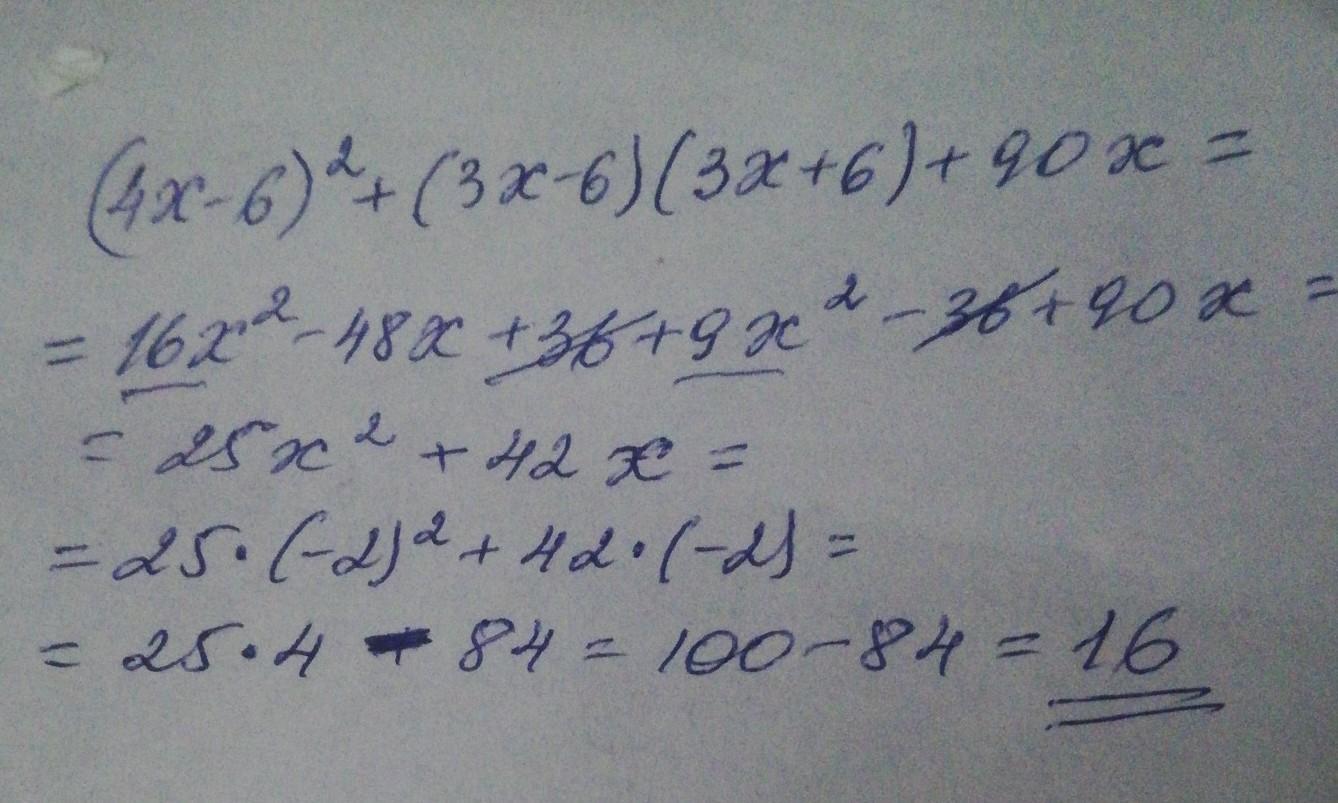 (4x-6)²+(3x-6)(3x+6)+90x=
=16x²-48x+36+9x²-36+90x=
=25x²+42x=
=25·(-2)²+42·(-2)=
=25·4-84=100-84=16